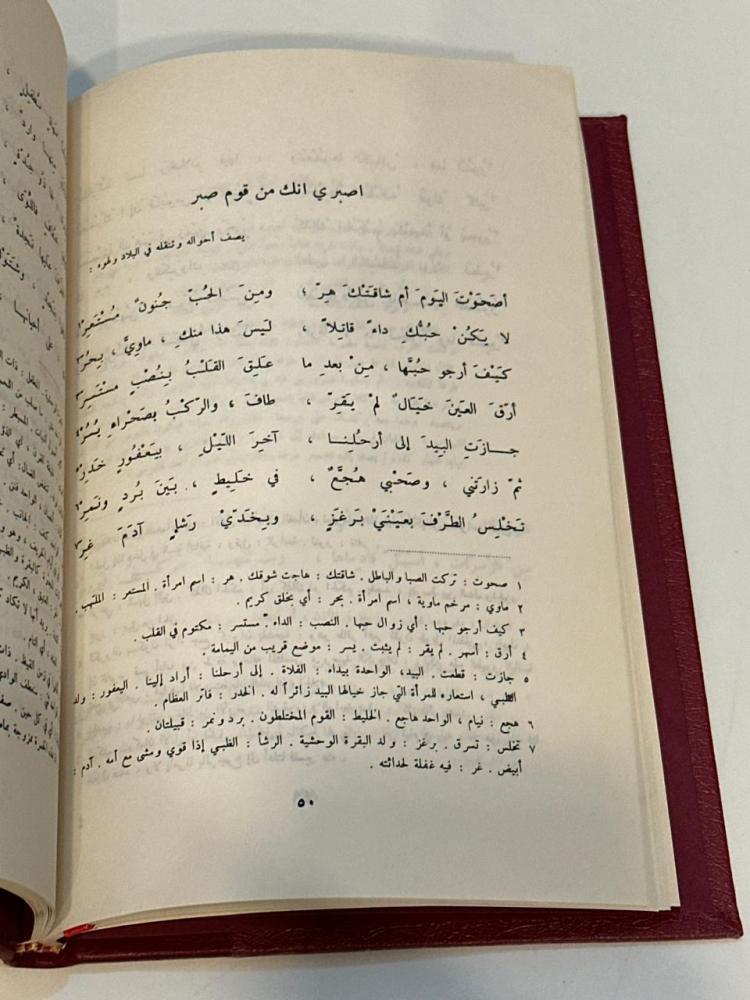 اصبري انك من قوم صبر
يصف أحواله وتنقله في البلاد ولهوه :
أصَحَوْتَ اليَوْمَ أم شاقَتْكَ هِرّ ، ومِنَ الحُبّ جُنُونٌ مُسْتَعِرْ١
لا يَكُنْ حُبُّكِ داءً قاتِلاً ، لَيْسَ هذا منكِ ، ماوِيَّ ، بِحُرّ٢
كَيْفَ أرجو حُبَّها ، مِنْ بعدِ ما عَلِقَ القَلْبُ بِنُصْبٍ مُسْتَسِرّ٣
أرّقَ العَينَ خَيالٌ لمْ يَقِرّ ، طافَ ، والرّكْبُ بصَحْراءِ يُسُرْ٤
جازَتِ البِيدَ إلى أرحُلِنا ، آخِرَ اللّيْلِ ، بيَعْفُورٍ خَدِرْ٥
ثمّ زارَتني ، وصَحْبي هُجَّعٌ ، في خَليطٍ ، بَينَ بُردٍ ونَمِرْ٦
تَخْلِسُ الطَّرْفَ بعَيْنَيْ بَرغَزٍ ، وبخَدّيْ رَشإٍ آدَمَ غِرّ٧
١ صحوت : تركت الصبا والباطل . شاقتك : هاجت شوقك . هر : اسم امرأة . المستعر : الملتهب .
٢ ماوي : مرخم ماوية ، اسم امرأة . بحر : أي بخلق كريم .
٣ كيف أرجو حبها : أي زوال حبها . النصب : الداء . مستسر : مكتوم في القلب .
٤ أرق : أسهر . لم يقر : لم يثبت . يسر : موضع قريب من اليمامة .
٥ جازت : قطعت . البيد ، الواحدة بيداء : الفلاة . إلى أرحلنا : أراد إلينا . اليعفور : ولد
الظبي ، استعاره للمرأة التي جاز خيالها البيد زائراً له . الخدر : فاتر العظام .
٦ هجع : نيام ، الواحد هاجع . الخليط : القوم المختلطون . برد ونمر : قبيلتان .
٧ تخلس : تسرق . برغز : ولد البقرة الوحشية . الرشأ : الظبي إذا قوي ومشى مع أمه . آدم :
أبيض . غر : فيه غفلة لحداثته .
٥٠